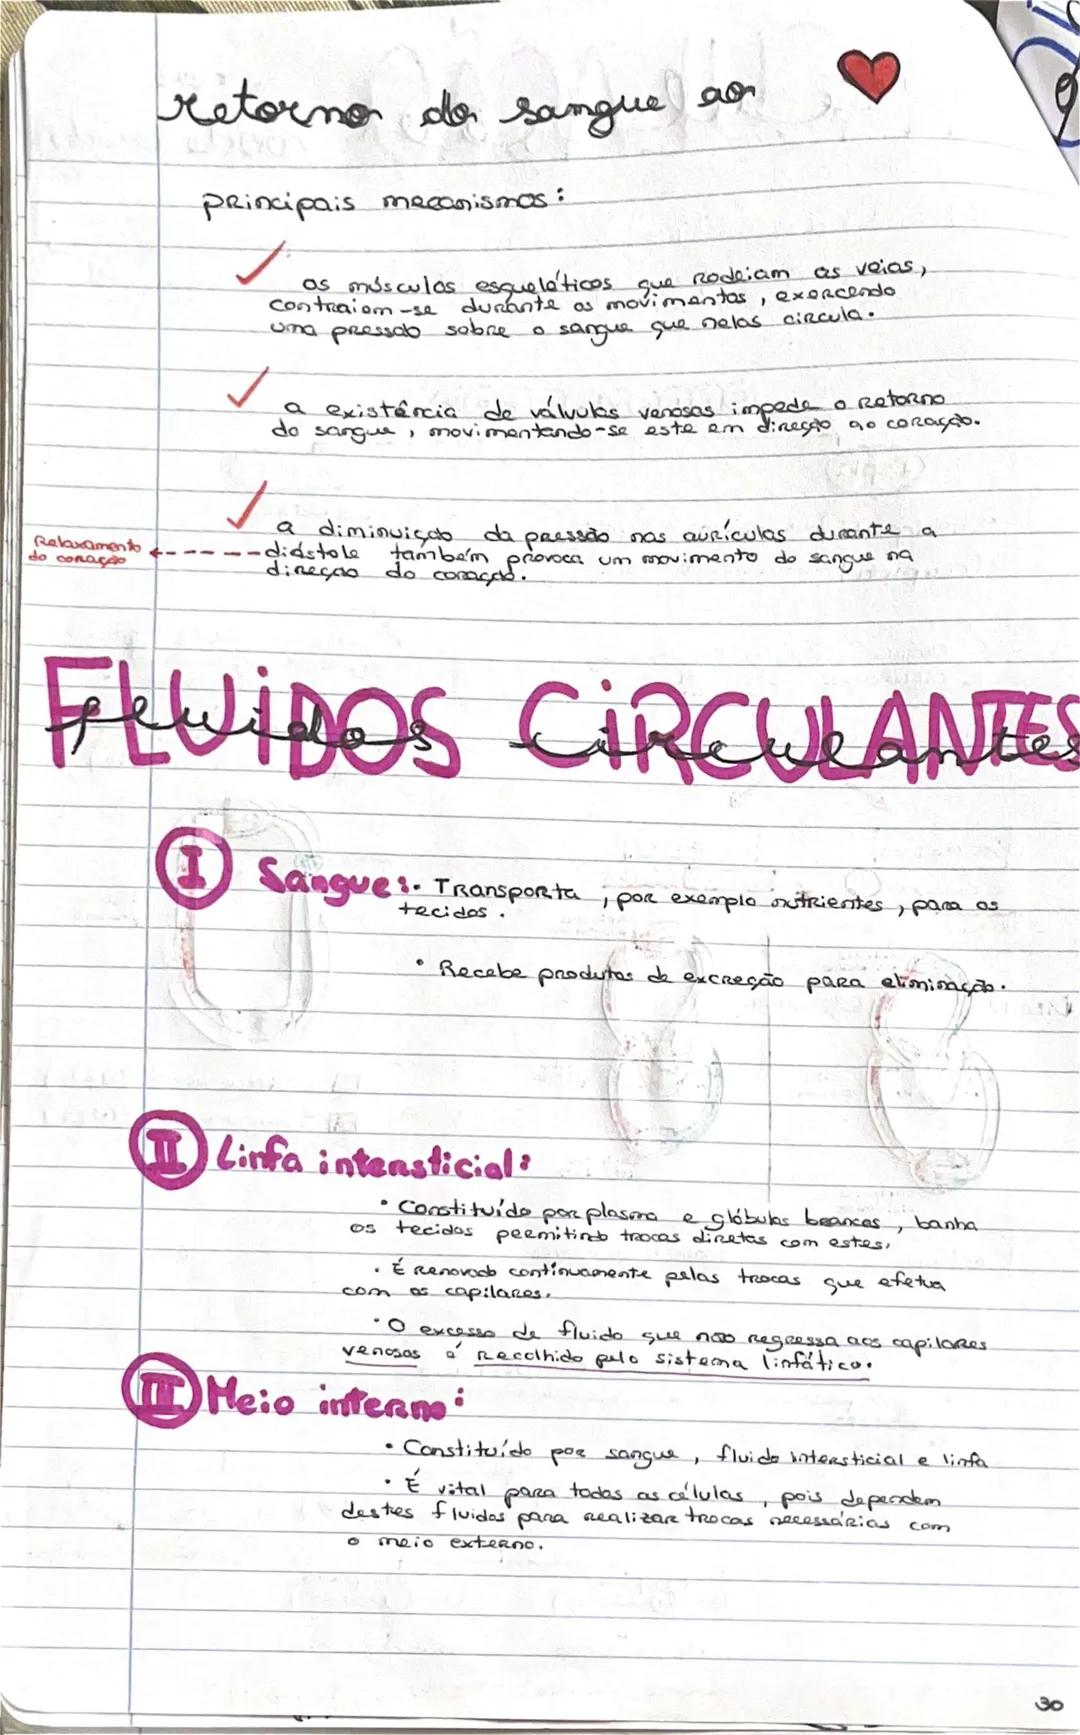 retorno do sangue ao
principais mecanismos:
os músculos esqueléticos que rodeiam as veias,
contraiem-se durante os movimentos, exercendo
uma pressão sobre o sangue que nelas circula.
a existência de válvulas venosas impede o retorno
do sangue, movimentando-se este em direção ao coração.
a diminuição da pressão nas aurículas durante a
diástole também provoca um movimento do sangue na
direção do coração.
Relaxamento
do coração
FLUIDOS CIRCULANTES
fluidos circulantes
I Sangue: • Transporta, por exemplo nutrientes, para os
tecidos.
• Recebe produtos de excreção para eliminação.
II Linfa intensticial:
• Constituído por plasma e glóbulos brancos, banha
os tecidos permitindo trocas diretas com estes,
• É renovado continuamente pelas trocas que efetua
com os capilares.
• O excesso de fluido que não regressa aos capilares
venosos é recolhido pelo sistema linfático.
III Meio interno:
• Constituído por sangue, fluido intersticial e linfa
• É vital para todas as células, pois dependem
destes fluidos para realizar trocas necessárias com
o meio externo.
30